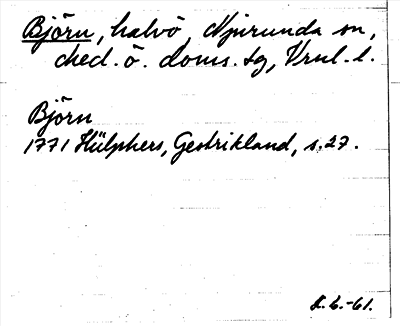 Björn, halvö, Njurunda sn,
Med. ö. doms. tg, Vrnl. l.
Björn
1771 Hülphers, Gestrikland, s. 27.
K. L. -61.